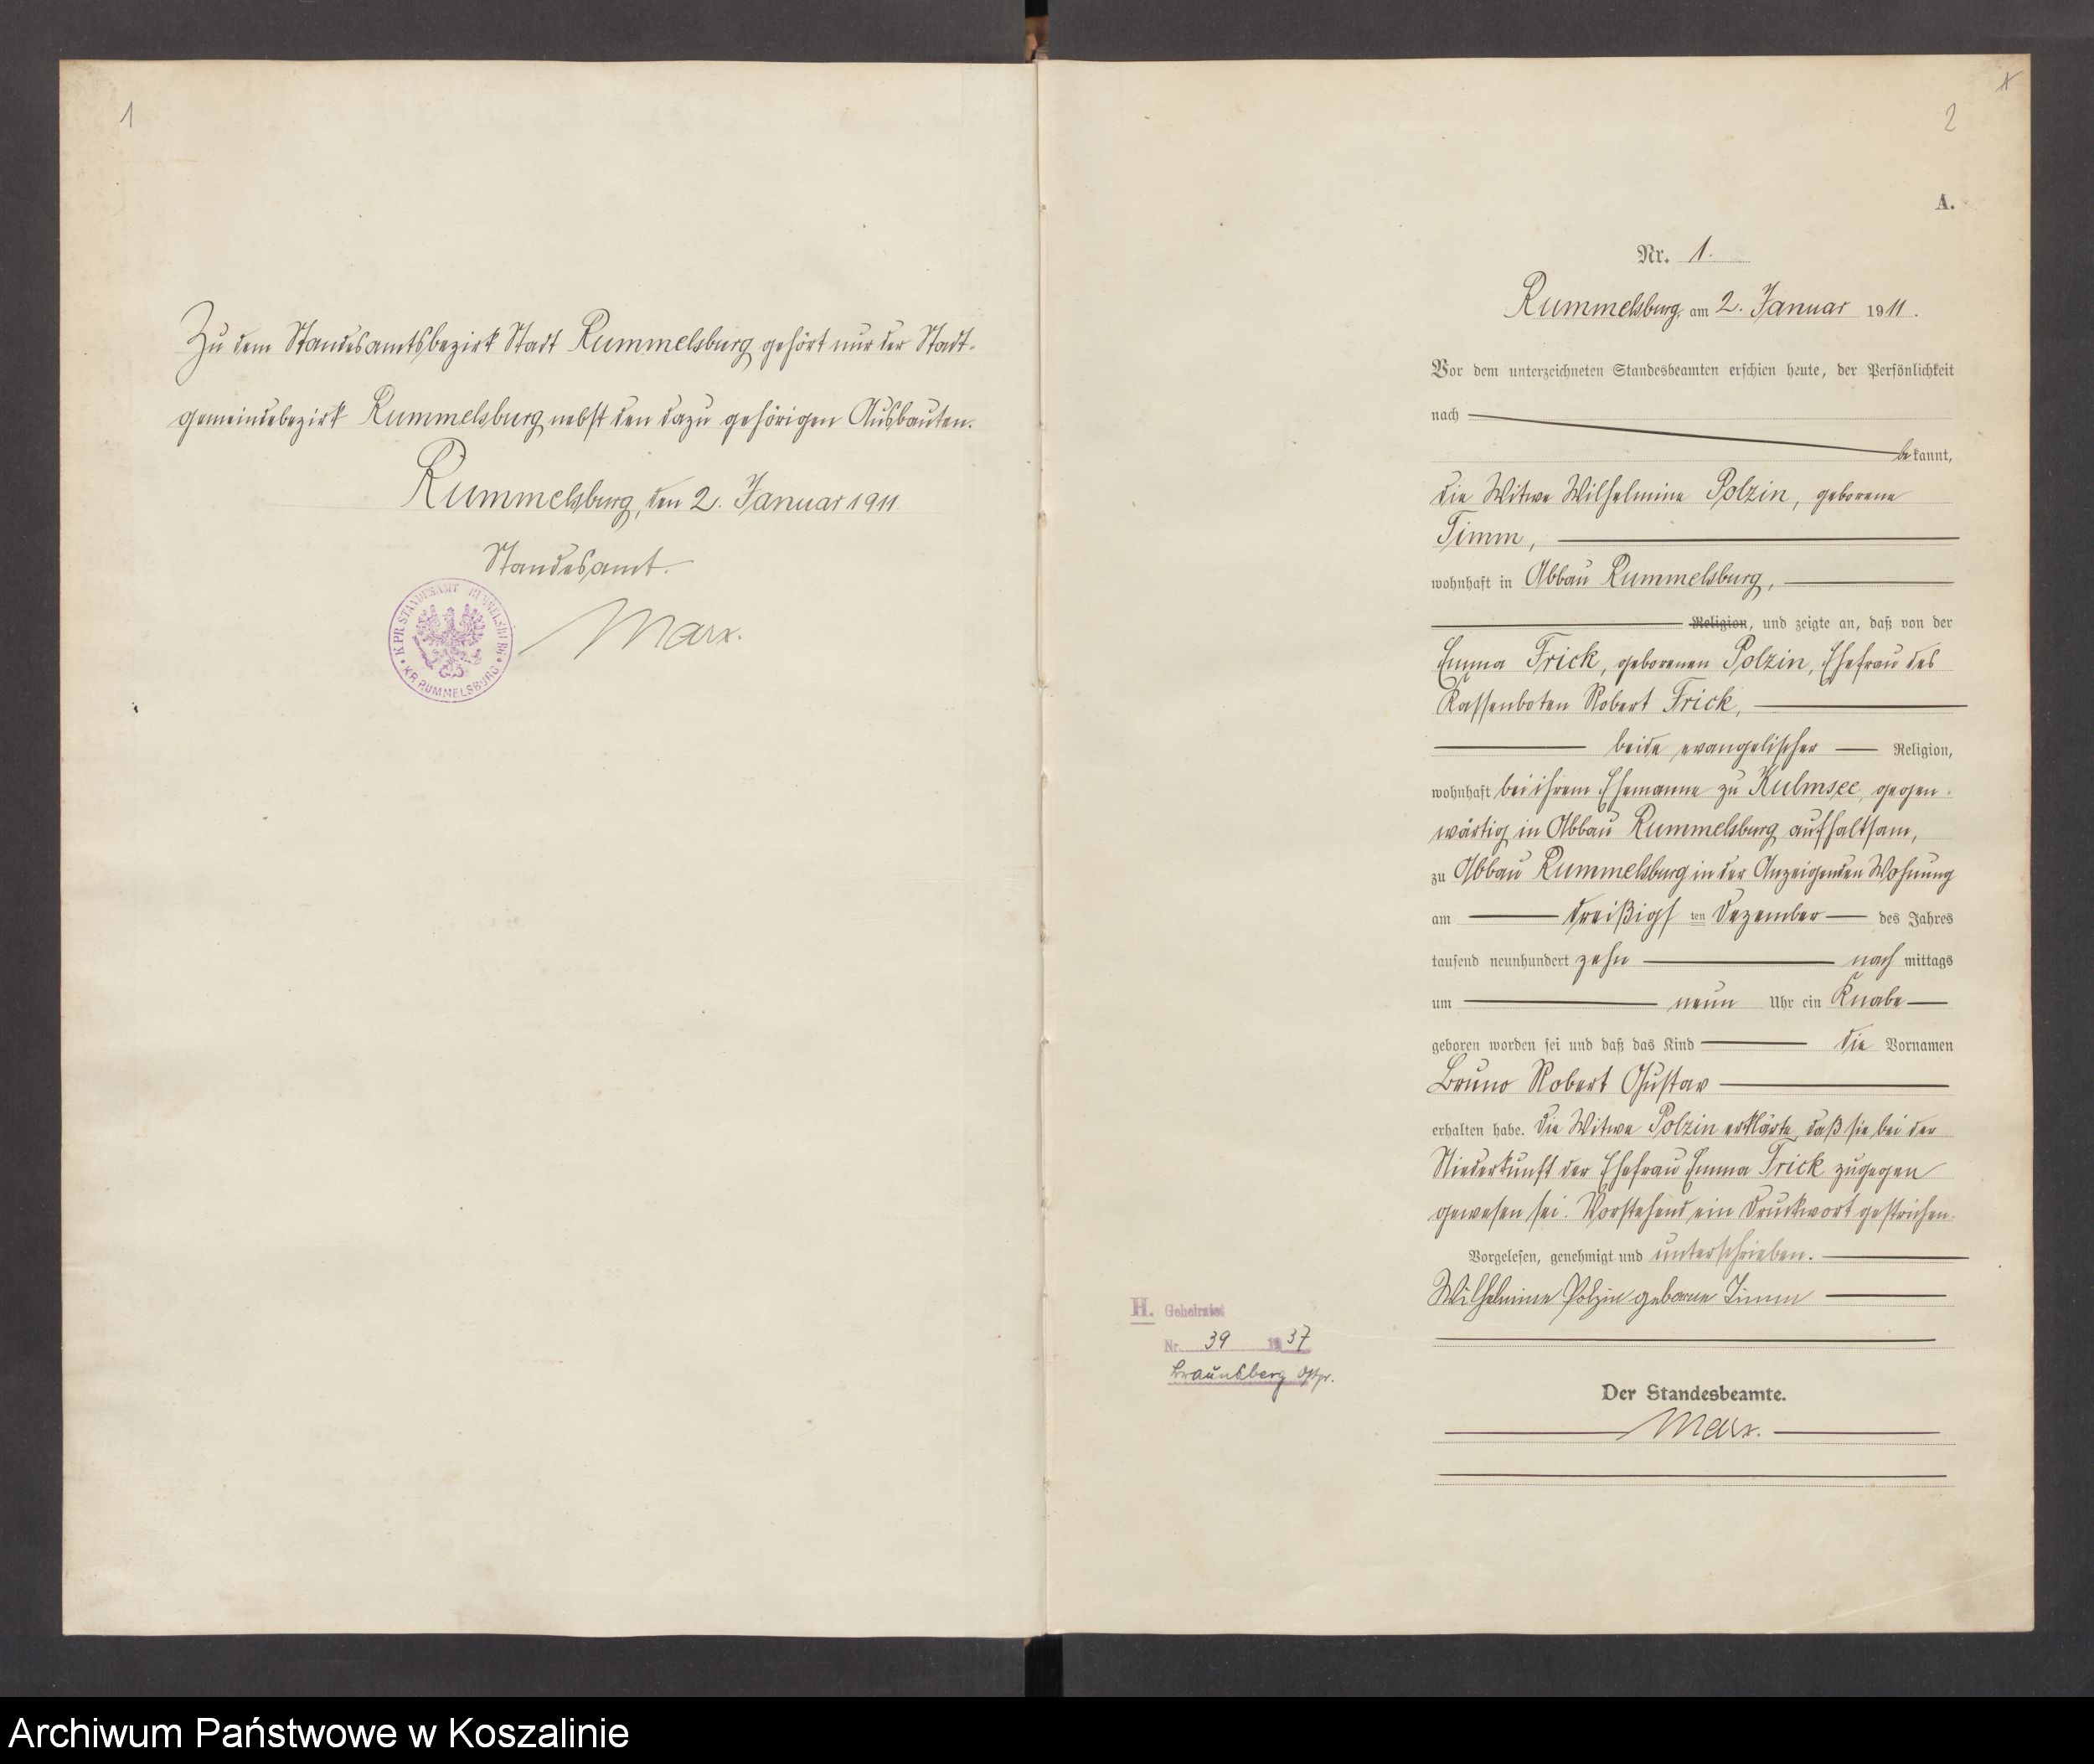 1
Zu dem Standesamtsbezirk Stadt Rummelsburg gehört nur der Stadt-
gemeindebezirk Rummelsburg nebst den dazu gehörigen Ausbauten.
Rummelsburg, den 2. Januar 1911.
Standesamt.
Marx.
K. PR. STANDESAMT RUMMELSBURG
KR. RUMMELSBURG
2
A.
Nr. 1.
Rummelsburg, am 2. Januar 1911.
Vor dem unterzeichneten Standesbeamten erschien heute, der Persönlichkeit
nach
bekannt,
die Witwe Wilhelmine Polzin, geborene
Timm,
wohnhaft in Abbau Rummelsburg,
Religion, und zeigte an, daß von der
Emma Frick, geborenen Polzin, Ehefrau des
Kassenboten Robert Frick,
beide evangelischer Religion,
wohnhaft bei ihrem Ehemanne zu Kulmsee, gegen-
wärtig in Abbau Rummelsburg aufhaltsam,
zu Abbau Rummelsburg in der Anzeigenden Wohnung
am dreißigsten Dezember des Jahres
tausend neunhundert zehn nach mittags
um neun Uhr ein Knabe
geboren worden sei und daß das Kind die Vornamen
Bruno Robert Gustav
erhalten habe. Die Witwe Polzin erklärte, daß sie bei der
Niederkunft der Ehefrau Emma Frick zugegen
gewesen sei. Vorstehend ein Druckwort gestrichen.
Vorgelesen, genehmigt und unterschrieben.
Wilhelmine Polzin geborne Timm
H. Geheiratet
Nr. 39 1937
Braunsberg Ostpr.
Der Standesbeamte.
Marx.
Archiwum Państwowe w Koszalinie